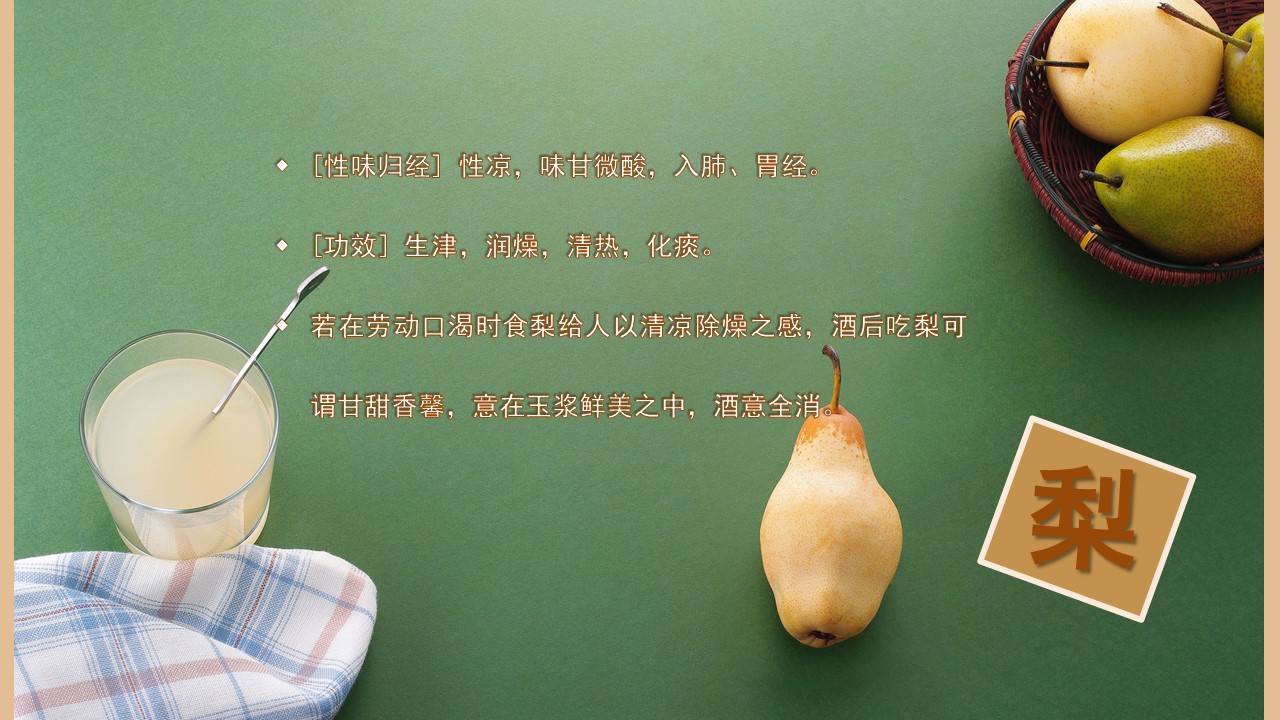 [性味归经] 性凉，味甘微酸，入肺、胃经。
[功效] 生津，润燥，清热，化痰。
若在劳动口渴时食梨给人以清凉除燥之感，酒后吃梨可
谓甘甜香馨，意在玉浆鲜美之中，酒意全消。
梨